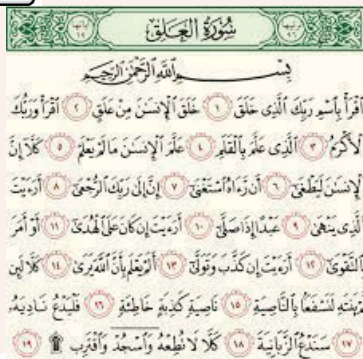 سُورَةُ العَلَقِ
بِسْمِ اللَّهِ الرَّحْمَٰنِ الرَّحِيمِ
ٱقۡرَأۡ بِٱسۡمِ رَبِّكَ ٱلَّذِي خَلَقَ ١ خَلَقَ ٱلۡإِنسَٰنَ مِنۡ عَلَقٍ ٢ ٱقۡرَأۡ وَرَبُّكَ
ٱلۡأَكۡرَمُ ٣ ٱلَّذِي عَلَّمَ بِٱلۡقَلَمِ ٤ عَلَّمَ ٱلۡإِنسَٰنَ مَا لَمۡ يَعۡلَمۡ ٥ كَلَّآ إِنَّ
ٱلۡإِنسَٰنَ لَيَطۡغَىٰٓ ٦ أَن رَّءَاهُ ٱسۡتَغۡنَىٰٓ ٧ إِنَّ إِلَىٰ رَبِّكَ ٱلرُّجۡعَىٰٓ ٨ أَرَءَيۡتَ
ٱلَّذِي يَنۡهَىٰ ٩ عَبۡدًا إِذَا صَلَّىٰٓ ١٠ أَرَءَيۡتَ إِن كَانَ عَلَى ٱلۡهُدَىٰٓ ١١ أَوۡ أَمَرَ
بِٱلتَّقۡوَىٰٓ ١٢ أَرَءَيۡتَ إِن كَذَّبَ وَتَوَلَّىٰٓ ١٣ أَلَمۡ يَعۡلَم بِأَنَّ ٱللَّهَ يَرَىٰ ١٤ كَلَّا لَئِن
يَنتَهِ لَنَسۡفَعَۢا بِٱلنَّاصِيَةِ ١٥ نَاصِيَةٖ كَٰذِبَةٍ خَاطِئَةٖ ١٦ فَلۡيَدۡعُ نَادِيَهُۥ
١٧ سَنَدۡعُ ٱلزَّبَانِيَةَ ١٨ كَلَّا لَا تُطِعۡهُ وَٱسۡجُدۡۤ وَٱقۡتَرِب ۩ ١٩